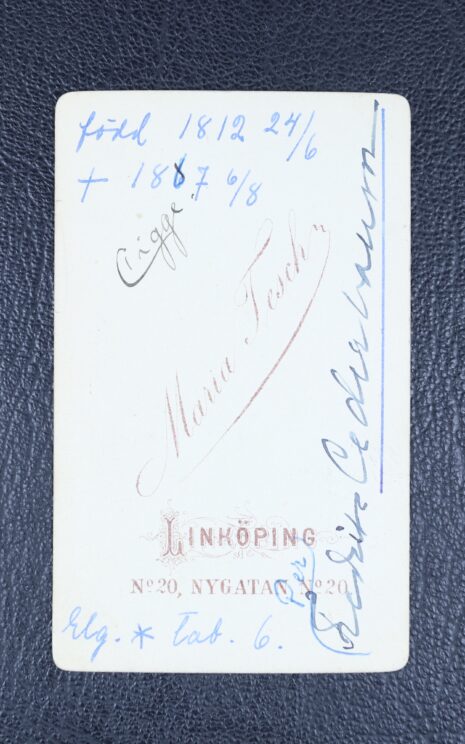 född 1812 24/6
+ 1887 6/8
Sigge.
Maria Tesch
LINKÖPING
No 20, NYGATAN, No 20
Per
Fredrik Cederbaum
Elg. * tab. 6.